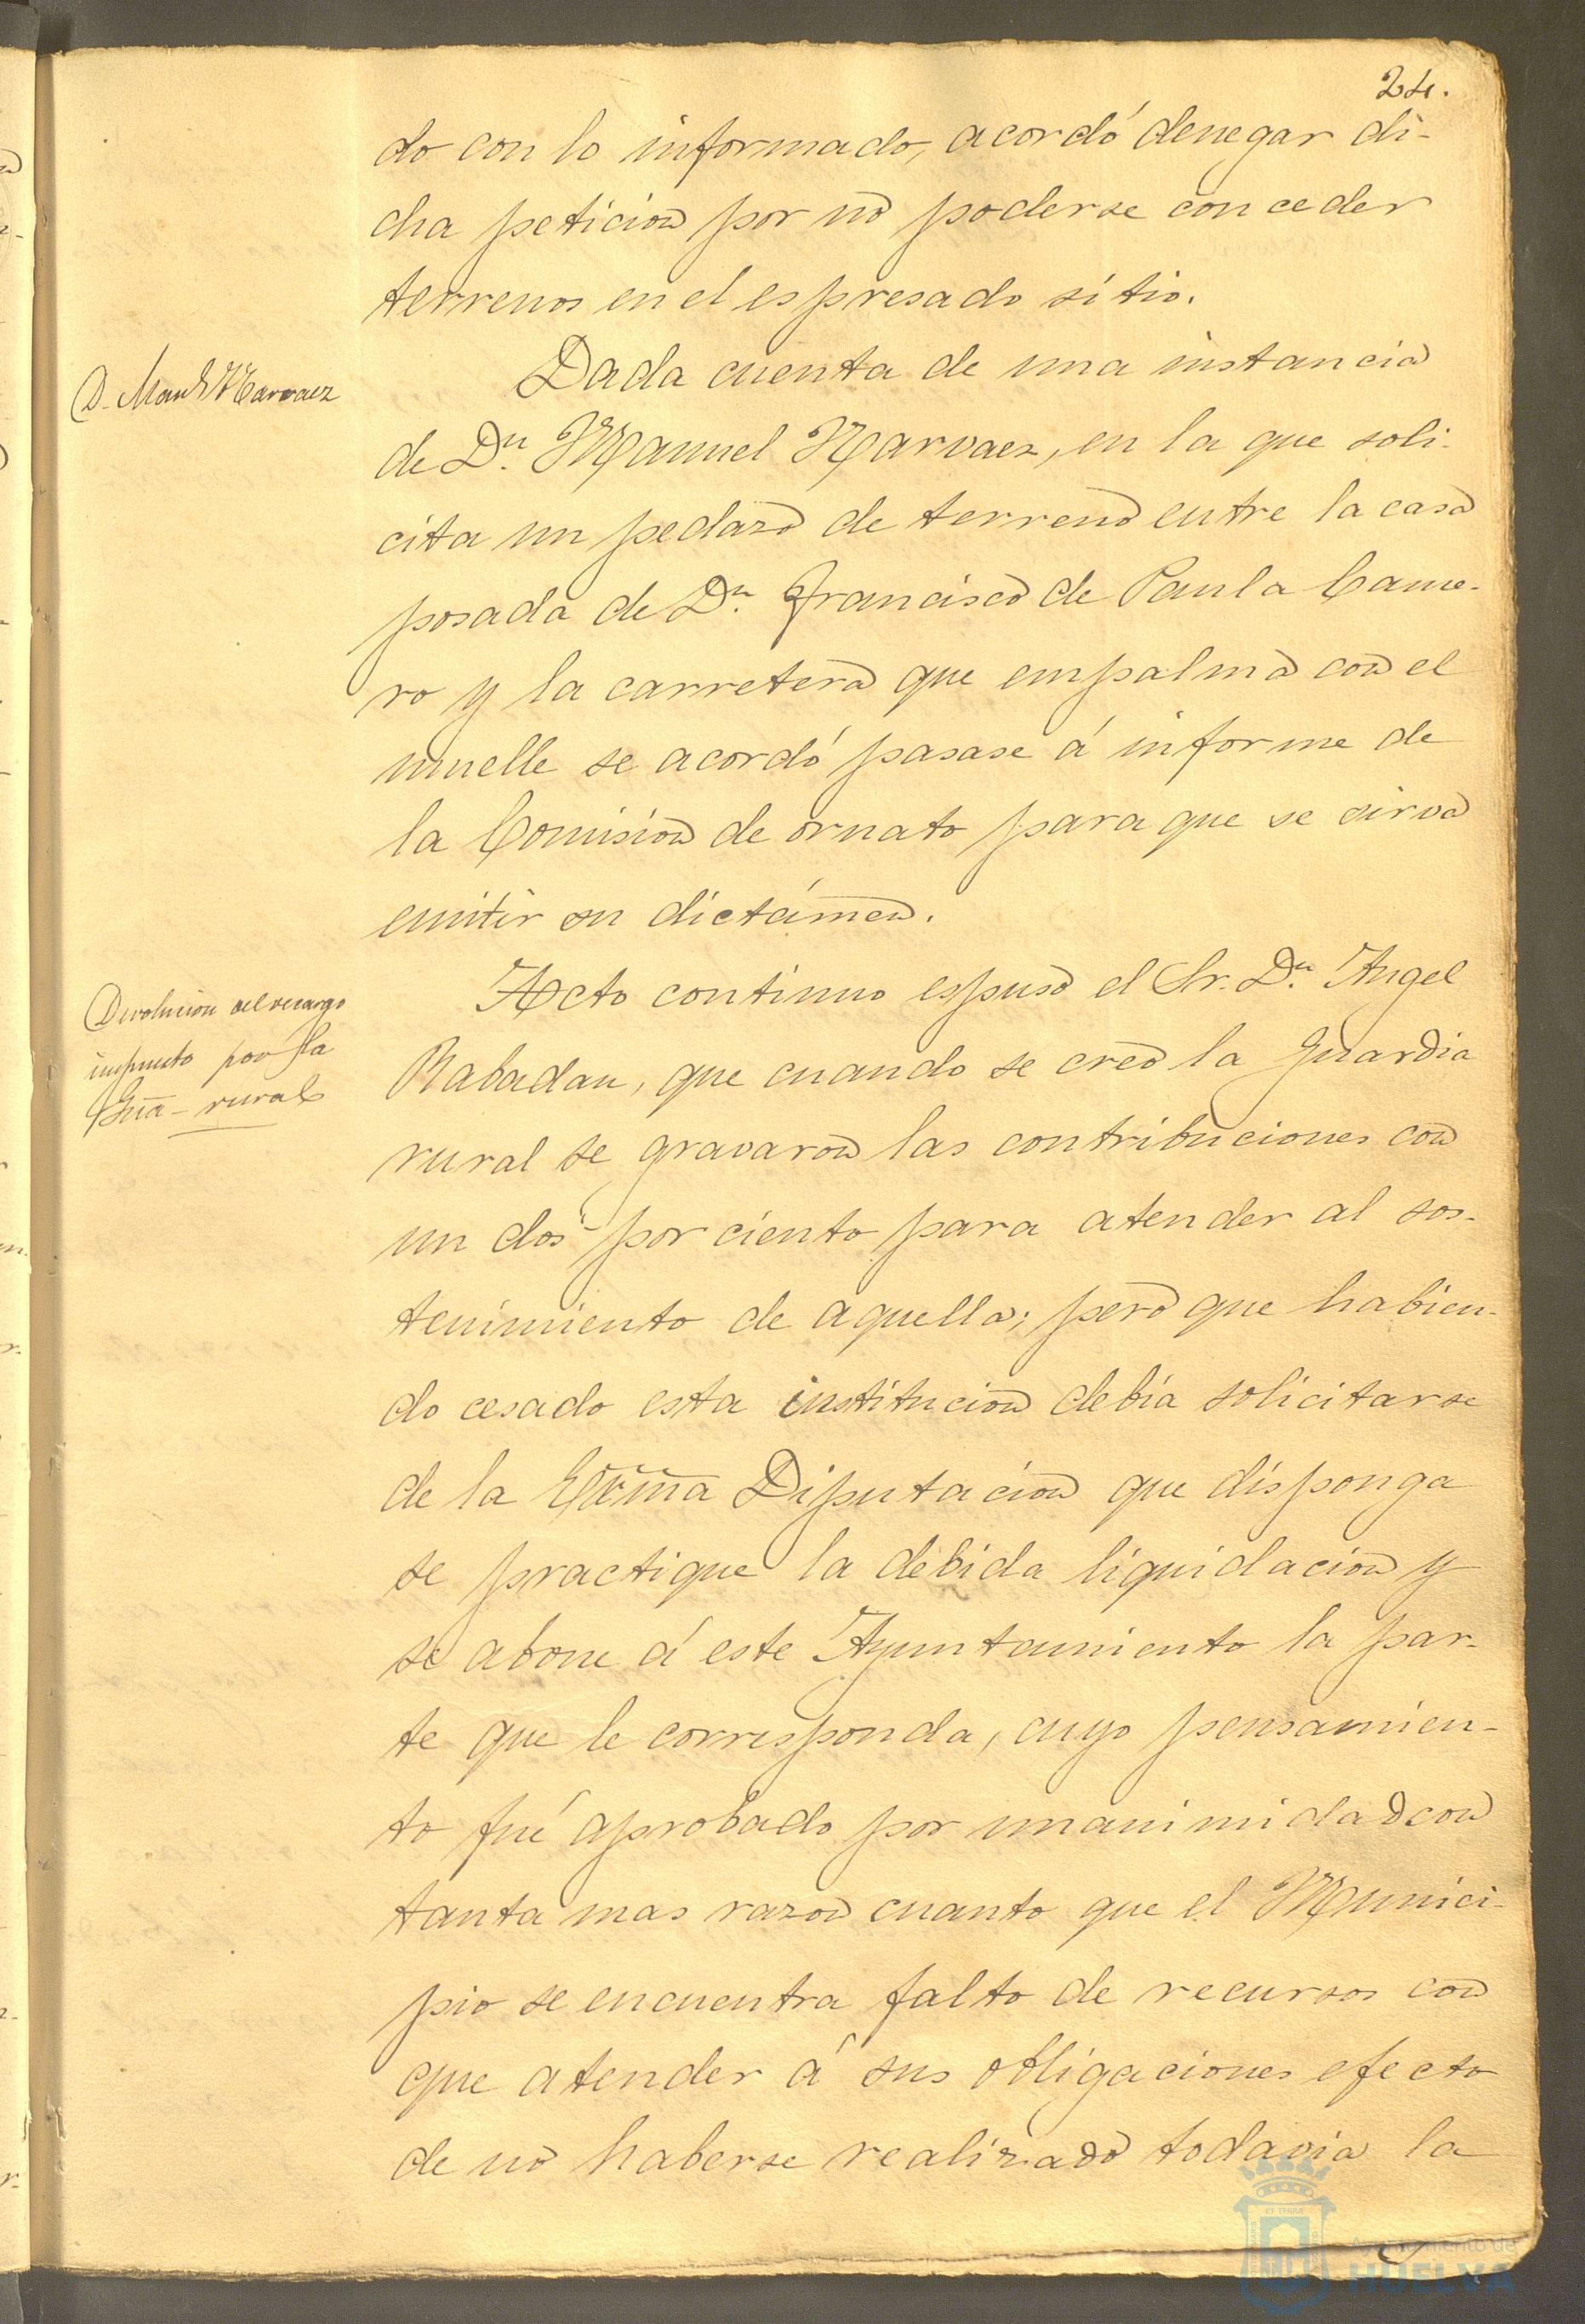 24.
do con lo informado, acordó denegar di-
cha peticion por no poderse conceder
terrenos en el espresado sitio.
D. Manl Narvaez
Dada cuenta de una instancia
de Dn. Manuel Narvaez, en la que soli-
cita un pedazo de terreno entre la casa
posada de Dn. Francisco de Paula Came-
ro y la carretera que empalma con el
muelle se acordó pasase á informe de
la Comision de ornato para que se sirva
emitir su dictámen.
Devolucion del recargo
impuesto por la
Gua- rural
Acto continuo espuso el Sr. Dn. Angel
Rabadan, que cuando se creó la Guardia
rural se gravaron las contribuciones con
un dos por ciento para atender al sos-
tenimiento de aquella; pero que habien-
do cesado esta institucion debía solicitarse
de la Excma Diputacion que disponga
se practique la debida liquidacion y
se abone á este Ayuntamiento la par-
te que le corresponda, cuyo pensamien-
to fué aprobado por unanimidad con
tanta mas razon cuanto que el Munici-
pio se encuentra falto de recursos con
que atender á sus obligaciones efecto
de no haberse realizado todavia la
Ayuntamiento de
HUELVA